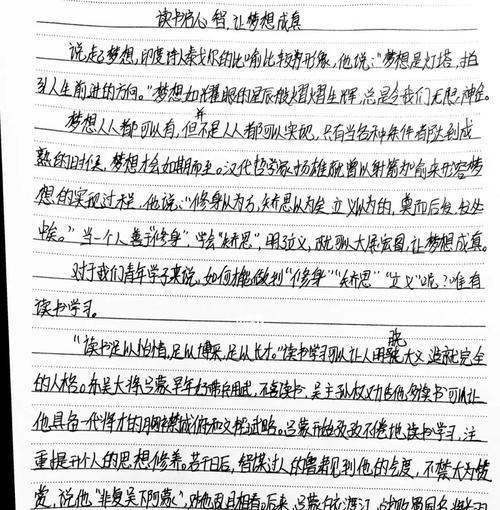 读书启心智,让梦想成真
说起梦想,印度诗人泰戈尔的比喻比较有形象,他说:"梦想是灯塔,指
引人生前进的方向。"梦想如耀眼的星辰般熠熠生辉,总是令我们无限神往。
梦想人人都可以有,并但不是人人都可以实现,只有当各种条件都达到成
熟的时候,梦想才会如期而至。汉代哲学家扬雄就曾以射箭为喻来形容梦
想的实现过程,他说:"修身以为弓,矫思以为矢,立义以为的,奠而后发,发必
中矣。"当一个人善于"修身",学会"矫思",明了立义,就可以大展宏图,让梦想成真。
对于我们青年学子来说,如何才能做到"修身""矫思""立义"呢?唯有
读书学习。
"读书足以怡情,足以博采,足以长才。"读书学习可以让人明晓大义,造就完全
的人格。东吴大将吕蒙早年好带兵用武,不喜读书,吴主孙权劝他多读书可以让
他具备一代将才的胸襟城府和文韬武略。吕蒙开始孜孜不倦地读书学习,注
重提升个人的思想修养。若干日后,智谋过人的鲁肃见到他的态度,不禁大为赞
赏,说他"非复吴下阿蒙",对他刮目相看。后来,吕蒙白衣渡江,